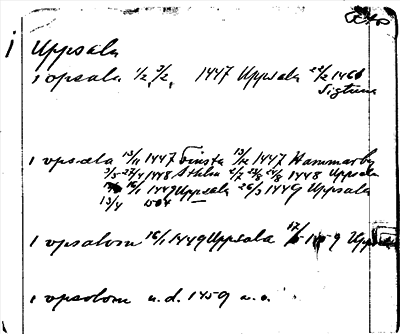 i Uppsala
i opsala 1/2, 3/2, 1447 Uppsala 24/2 1466
Sigtuna
i vpsæla 13/11 1447 Finsta 13/12 1447 Hammarby
3/5 27/4 1448 Sthlm 2/2 23/8 24/8 1448 Uppsala
16/1 1449 Uppsala 26/3 1449 Uppsala
13/4 1504
i vpsalom 16/1 1449 Uppsala 17/5 1459
i vpsolom u.d. 1459 u.o.